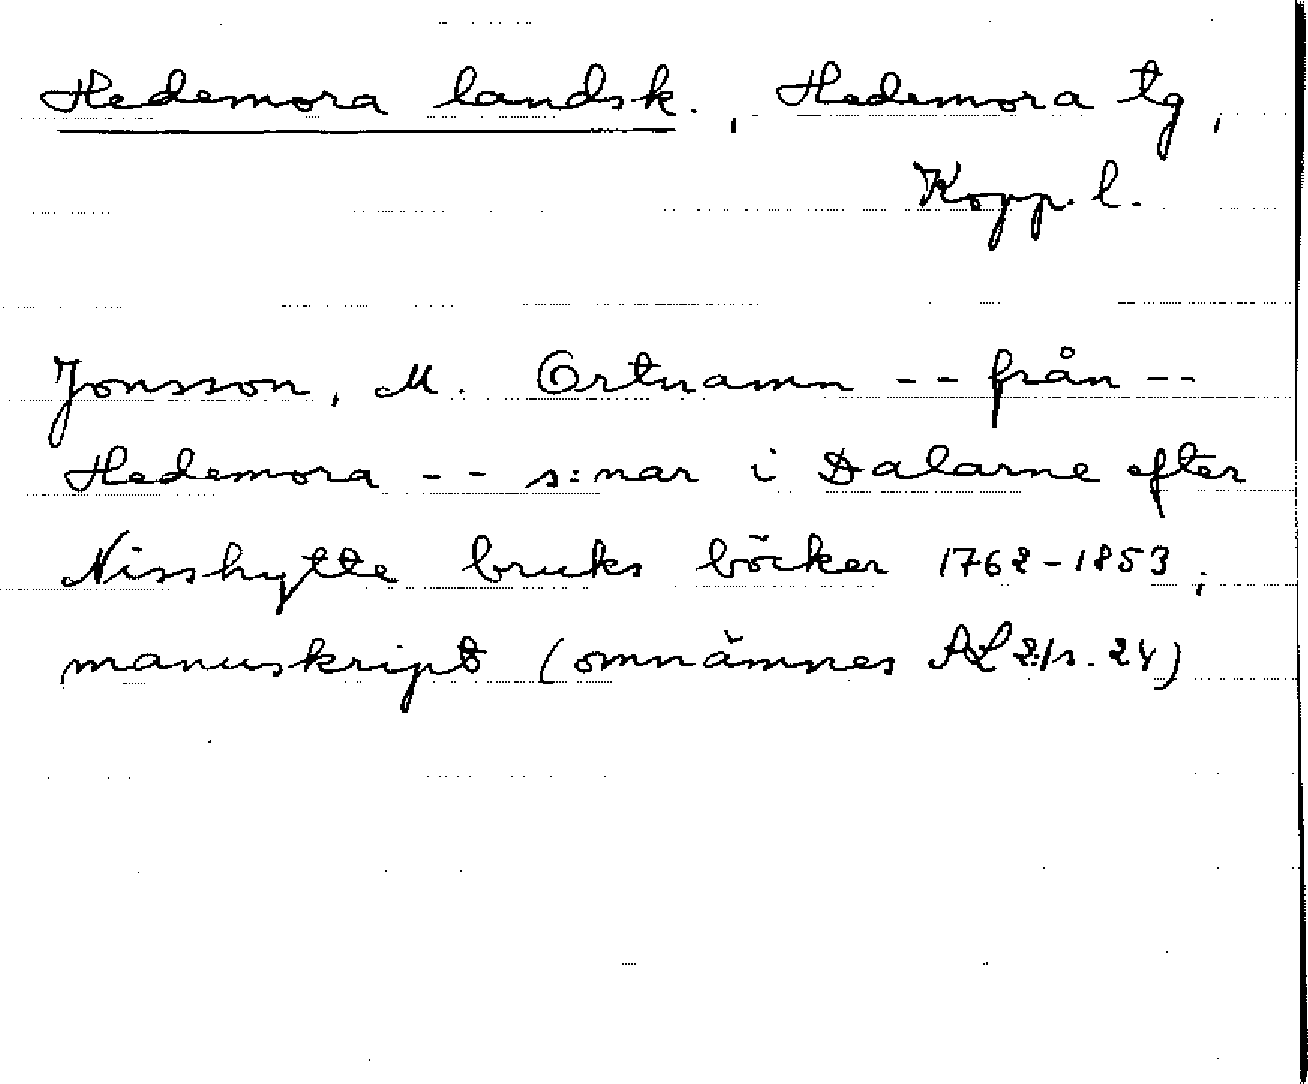 Hedemora landsk., Hedemora tg,
Kopp. l.
Jonsson, M. Ortnamn -- från --
Hedemora -- s:nar i Dalarne efter
Nisshytte bruks böcker 1762-1853,
manuskript (omnämnes AL 21 s. 24)